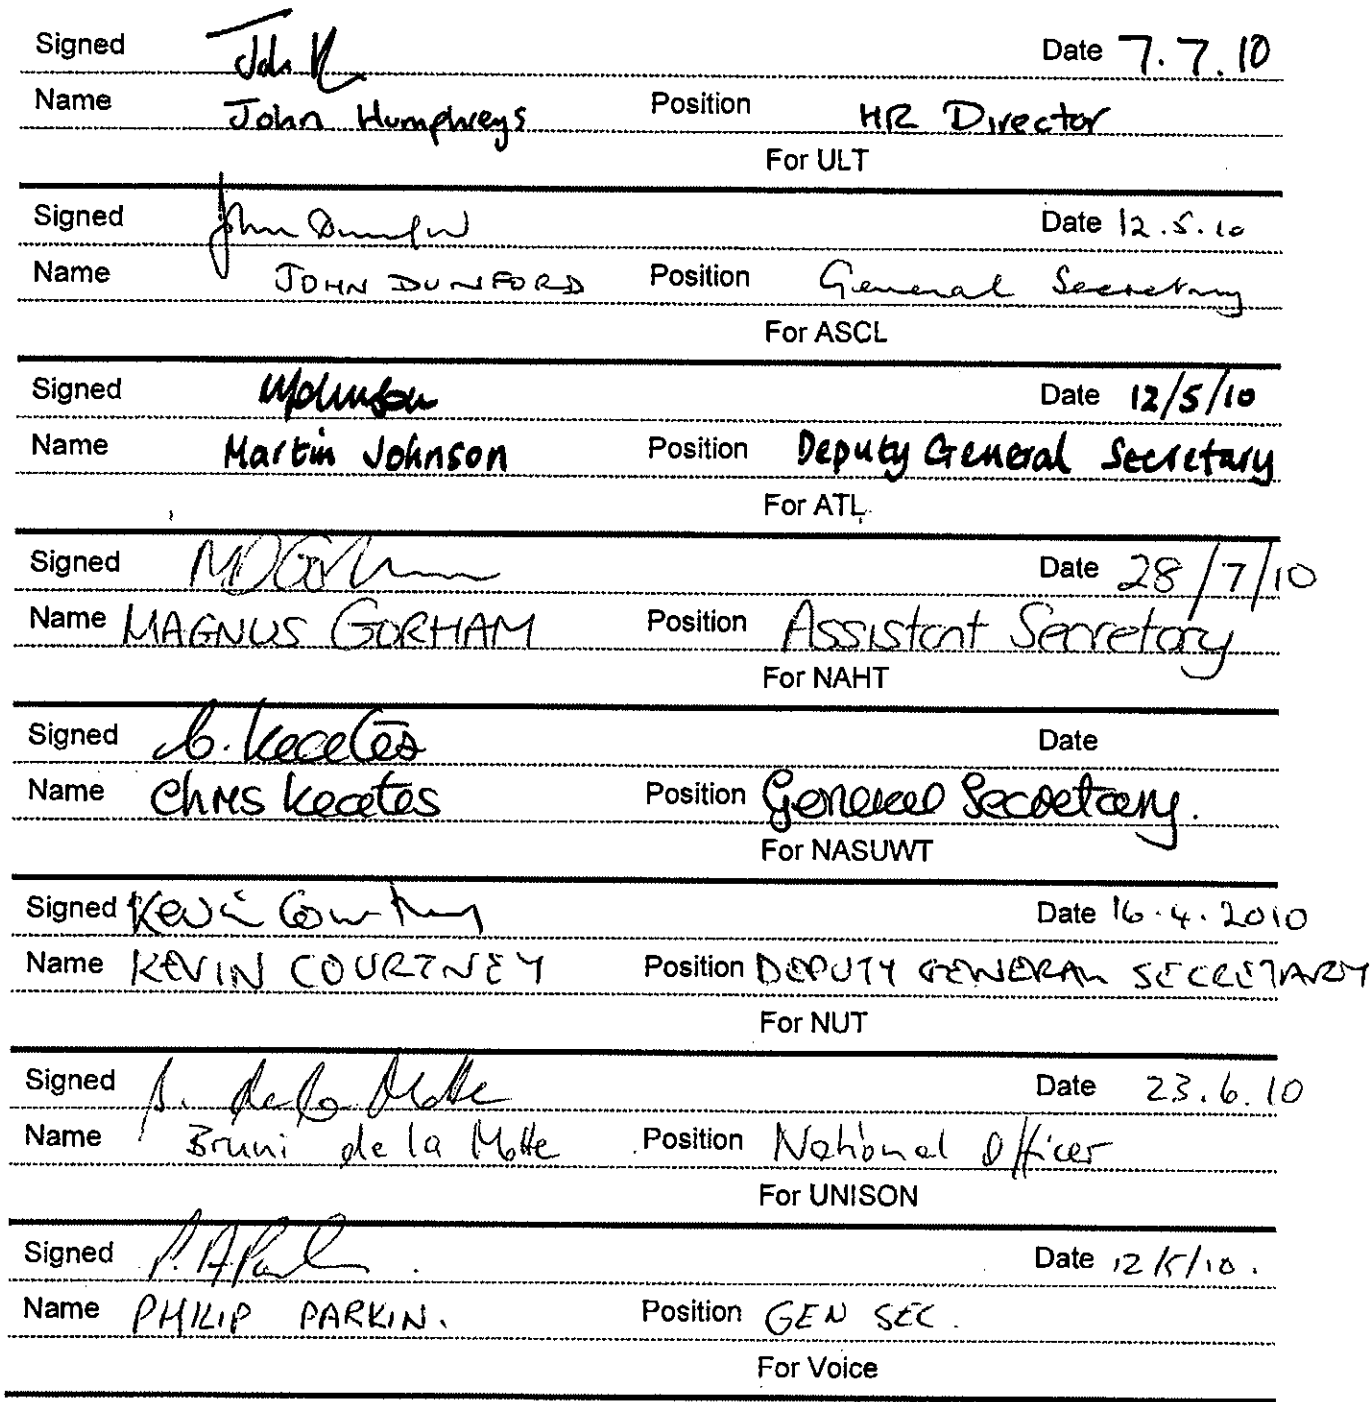 Signed Date 7.7.10
Name John Humphreys Position HR Director
For ULT
Signed John Dunford Date 12.5.10
Name JOHN DUNFORD Position General Secretary
For ASCL
Signed MJohnson Date 12/5/10
Name Martin Johnson Position Deputy General Secretary
For ATL
Signed Date 28/7/10
Name MAGNUS GORHAM Position Assistant Secretary
For NAHT
Signed C. Keates Date
Name Chris Keates Position General Secretary.
For NASUWT
Signed Kevin Courtney Date 16.4.2010
Name KEVIN COURTNEY Position DEPUTY GENERAL SECRETARY
For NUT
Signed B. de la Motte Date 23.6.10
Name Bruni de la Motte Position National Officer
For UNISON
Signed Date 12/5/10.
Name PHILIP PARKIN. Position GEN SEC.
For Voice